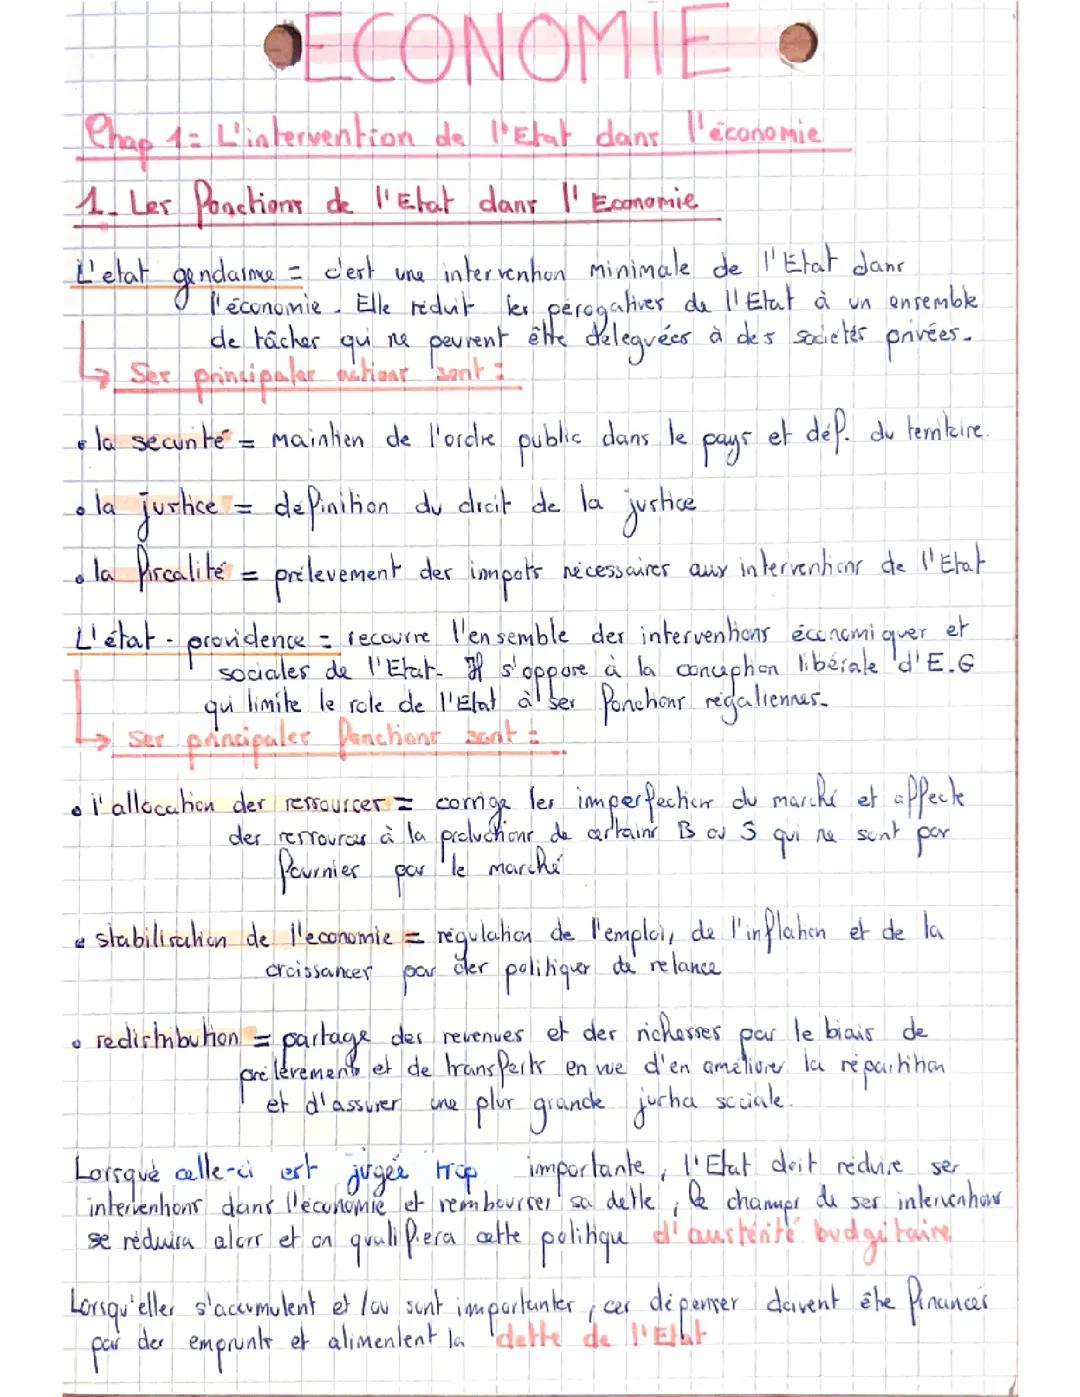 ECONOMIE
Chap 1 = L'intervention de l'Etat dans l'économie
1_ Les fonctions de l'Etat dans l'Economie
L'etat gendarme = c'est une intervention minimale de l'Etat dans
l'économie. Elle réduit les pérogatives de l'Etat à un ensemble
de tâches qui ne peuvent être déléguées à des sociétés privées.
↳ Ses principales actions sont :
• la sécurité = maintien de l'ordre public dans le pays et déf. du territoire.
• la justice = définition du droit de la justice
• la fiscalité = prélevement des impots nécessaires aux interventions de l'Etat
L'état - providence = recouvre l'ensemble des interventions économiques et
sociales de l'Etat. Il s'oppose à la conception libérale d'E.G
qui limite le role de l'Etat à ses fonctions régaliennes.
↳ Ses principales fonctions sont :
• l'allocation des ressources = corrige les imperfections du marché et affecte
des ressources à la productions de certains B ou S qui ne sont pas
fournies par le marché
• stabilisation de l'economie = régulation de l'emploi, de l'inflation et de la
croissances par des politiques de relance
• redistribution = partage des revenues et des richesses par le biais de
prélèvements et de transferts en vue d'en améliorer la répartition
et d'assurer une plus grande justice sociale.
Lorsque celle-ci est jugée trop importante, l'Etat doit réduire ses
interventions dans l'économie et rembourser sa dette, le champs de ses interventions
se réduira alors et on qualifiera cette politique d'austérité budgétaire
Lorsqu'elles s'accumulent et/ou sont importantes, ces dépenses doivent être financés
par des emprunts et alimentent la dette de l'Etat